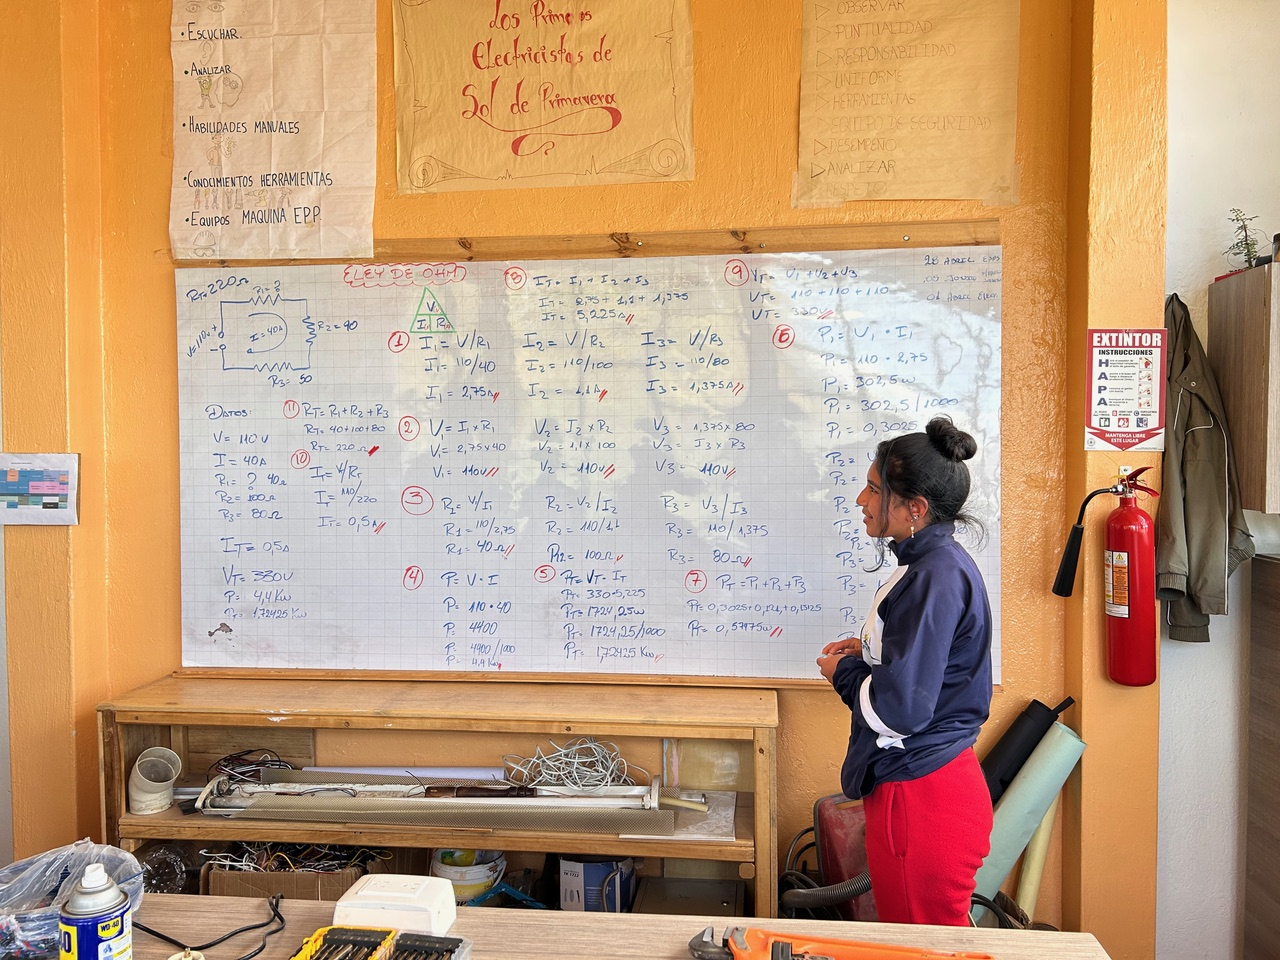 • ESCUCHAR.
• ANALIZAR
• HABILIDADES MANUALES
• CONOCIMIENTOS HERRAMIENTAS
• EQUIPOS MAQUINA EPP.
Los Primeros
Electricistas de
Sol de Primavera
OBSERVAR
PUNTUALIDAD
RESPONSABILIDAD
UNIFORME
HERRAMIENTAS
EQUIPO DE SEGURIDAD
DESEMPEÑO
ANALIZAR
RT=220Ω
R1=?
V=110v
I=40A
R2=90
R3= 50
LEY DE OHM
V
I R
DATOS:
V= 110V
I= 40A
R1= ? 40Ω
R2= 100Ω
R3= 80Ω
IT= 0,5A
VT= 330V
P= 4,4 Kw
PT= 1,72425 Kw
11 RT= R1+R2+R3
RT= 40+100+80
RT= 220 Ω
10 IT= V/RT
IT= 110/220
IT= 0,5A
1 I1= V/R1
I1= 110/40
I1= 2,75A
I2= V/R2
I2= 110/100
I2= 1,1A
I3= V/R3
I3= 110/80
I3= 1,375A
2 V1= I1xR1
V1= 2,75x40
V1= 110v
V2= I2xR2
V2= 1,1x100
V2= 110v
V3= 1,375x80
V3= I3xR3
V3= 110v
3 R1= V/I1
R1= 110/2,75
R1= 40Ω
R2= V2/I2
R2= 110/1,1
R2= 100Ω
R3= V3/I3
R3= 110/1,375
R3= 80Ω
4 P= V·I
P= 110·40
P= 4400
P= 4400/1000
P= 4,4Kw
5 PT= VT·IT
PT= 330·5,225
PT= 1724,25w
PT= 1724,25/1000
PT= 1,72425 Kw
7 PT= P1+P2+P3
PT= 0,3025+0,121+0,15125
PT= 0,57475w
8 IT= I1+I2+I3
IT= 2,75+1,1+1,375
IT= 5,225A
9 VT= V1+V2+V3
VT= 110+110+110
VT= 330v
6 P1= V1·I1
P1= 110·2,75
P1= 302,5w
P1= 302,5/1000
P1= 0,3025
P2=
P2=
P2=
P2=
P3=
P3=
P3=
EXTINTOR
INSTRUCCIONES
H
A
P
A
MANTENGA LIBRE
ESTE LUGAR
WD-40